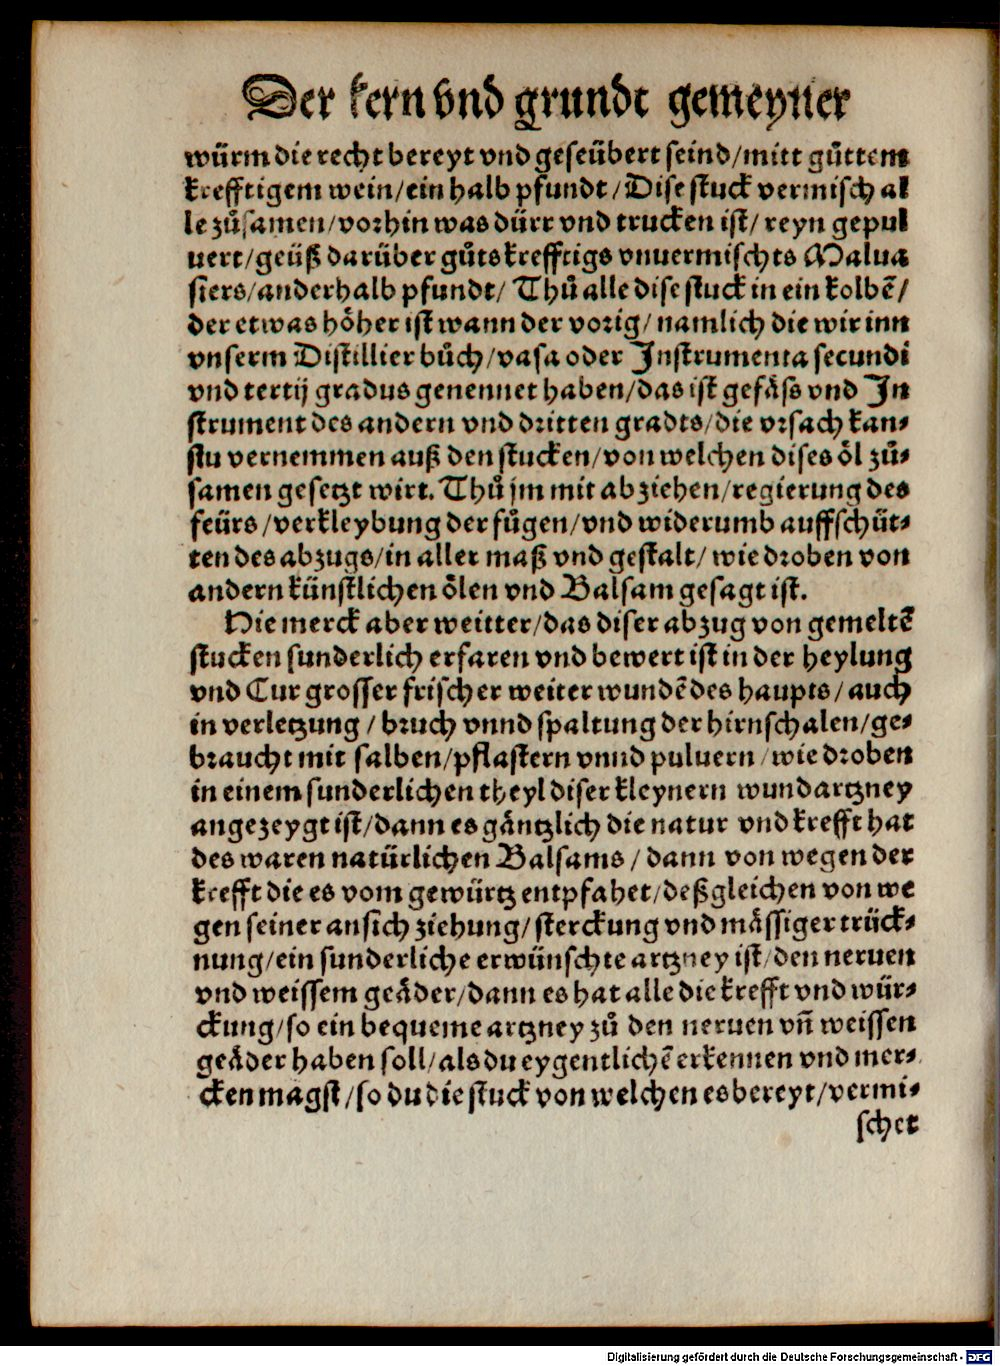 Der kern vnd grundt gemeyner
würm die recht bereyt vnd geseübert seind/mitt gůttem
krefftigem wein/ein halb pfundt/Dise stuck vermisch al
le zůsamen/vorhin was dürr vnd trucken ist/reyn gepul
uert/geüß darüber gůts krefftigs vnuermischts Malua
siers/anderhalb pfundt/Thů alle dise stuck in ein kolbẽ/
der etwas höher ist wann der vorig/namlich die wir inn
vnserm Distillier bůch/vasa oder Instrumenta secundi
vnd tertij gradus genennet haben/das ist gefäss vnd In
strument des andern vnd dritten gradts/die vrsach kan⸗
stu vernemmen auß den stucken/von welchen dises öl zů⸗
samen gesetzt wirt. Thů jm mit abziehen/regierung des
feürs/verkleybung der fůgen/vnd widerumb auffschüt⸗
ten des abzugs/in aller maß vnd gestalt/wie droben von
andern künstlichen ölen vnd Balsam gesagt ist.
Hie merck aber weitter/das diser abzug von gemeltẽ
stucken sunderlich erfaren vnd bewert ist in der heylung
vnd Cur grosser frischer weiter wundẽ des haupts/auch
in verletzung/bruch vnnd spaltung der hirnschalen/ge⸗
braucht mit salben/pflastern vnnd puluern/wie droben
in einem sunderlichen theyl diser kleynern wundartzney
angezeygt ist/dann es gäntzlich die natur vnd krefft hat
des waren natürlichen Balsams/dann von wegen der
krefft die es vom gewürtz entpfahet/deßgleichen von we
gen seiner ansich ziehung/sterckung vnd mässiger trück⸗
nung/ein sunderliche erwünschte artzney ist/den neruen
vnd weissem geäder/dann es hat alle die krefft vnd wür⸗
ckung/so ein bequeme artzney zů den neruen vñ weissen
geäder haben soll/als du eygentlichẽ erkennen vnd mer⸗
cken magst/so du die stuck von welchen es bereyt/vermi⸗
schet
Digitalisierung gefördert durch die Deutsche Forschungsgemeinschaft - DFG